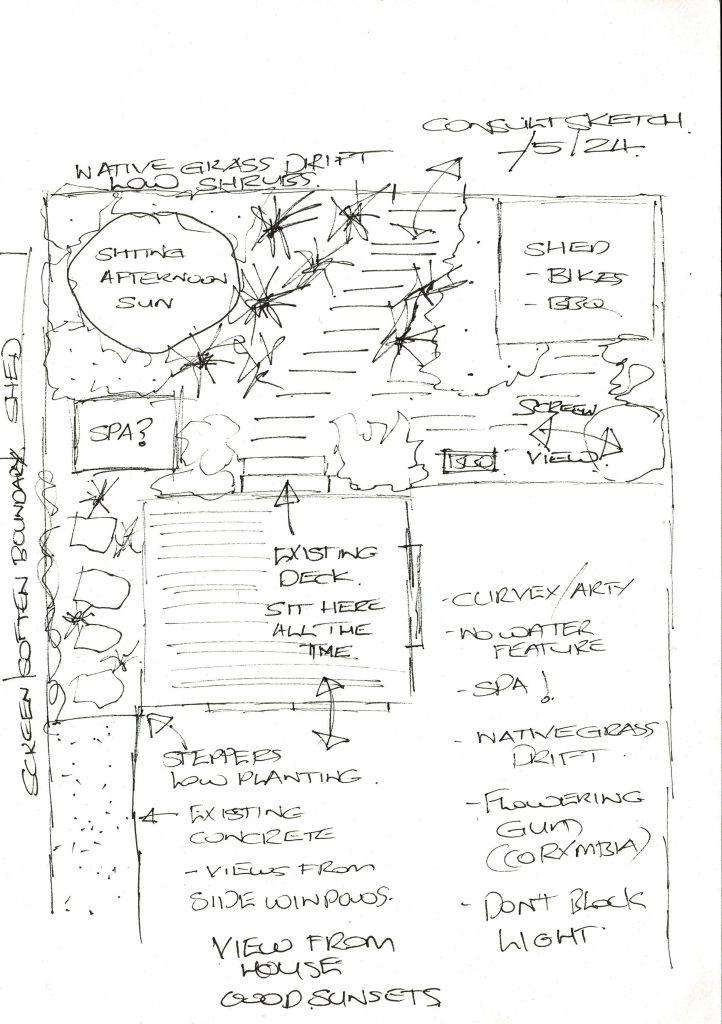 CONSULT SKETCH.
-/5/24.
NATIVE GRASS DRIFT
LOW SHRUBS
SITTING
AFTERNOON
SUN
SHED
- BIKES
- BBQ
SCREEN
VIEW.
SPA?
BBQ
SCREEN/SOFTEN BOUNDARY SHED
EXISTING
DECK.
SIT HERE
ALL THE
TIME.
- CURVEX/ARTY
- NO WATER
FEATURE
- SPA!
- NATIVE GRASS
DRIFT.
- FLOWERING
GUM
(CORYMBIA)
- DON'T BLOCK
LIGHT.
STEPPERS
LOW PLANTING.
EXISTING
CONCRETE
- VIEWS FROM
SIDE WINDOWS.
VIEW FROM
HOUSE
GOOD SUNSETS